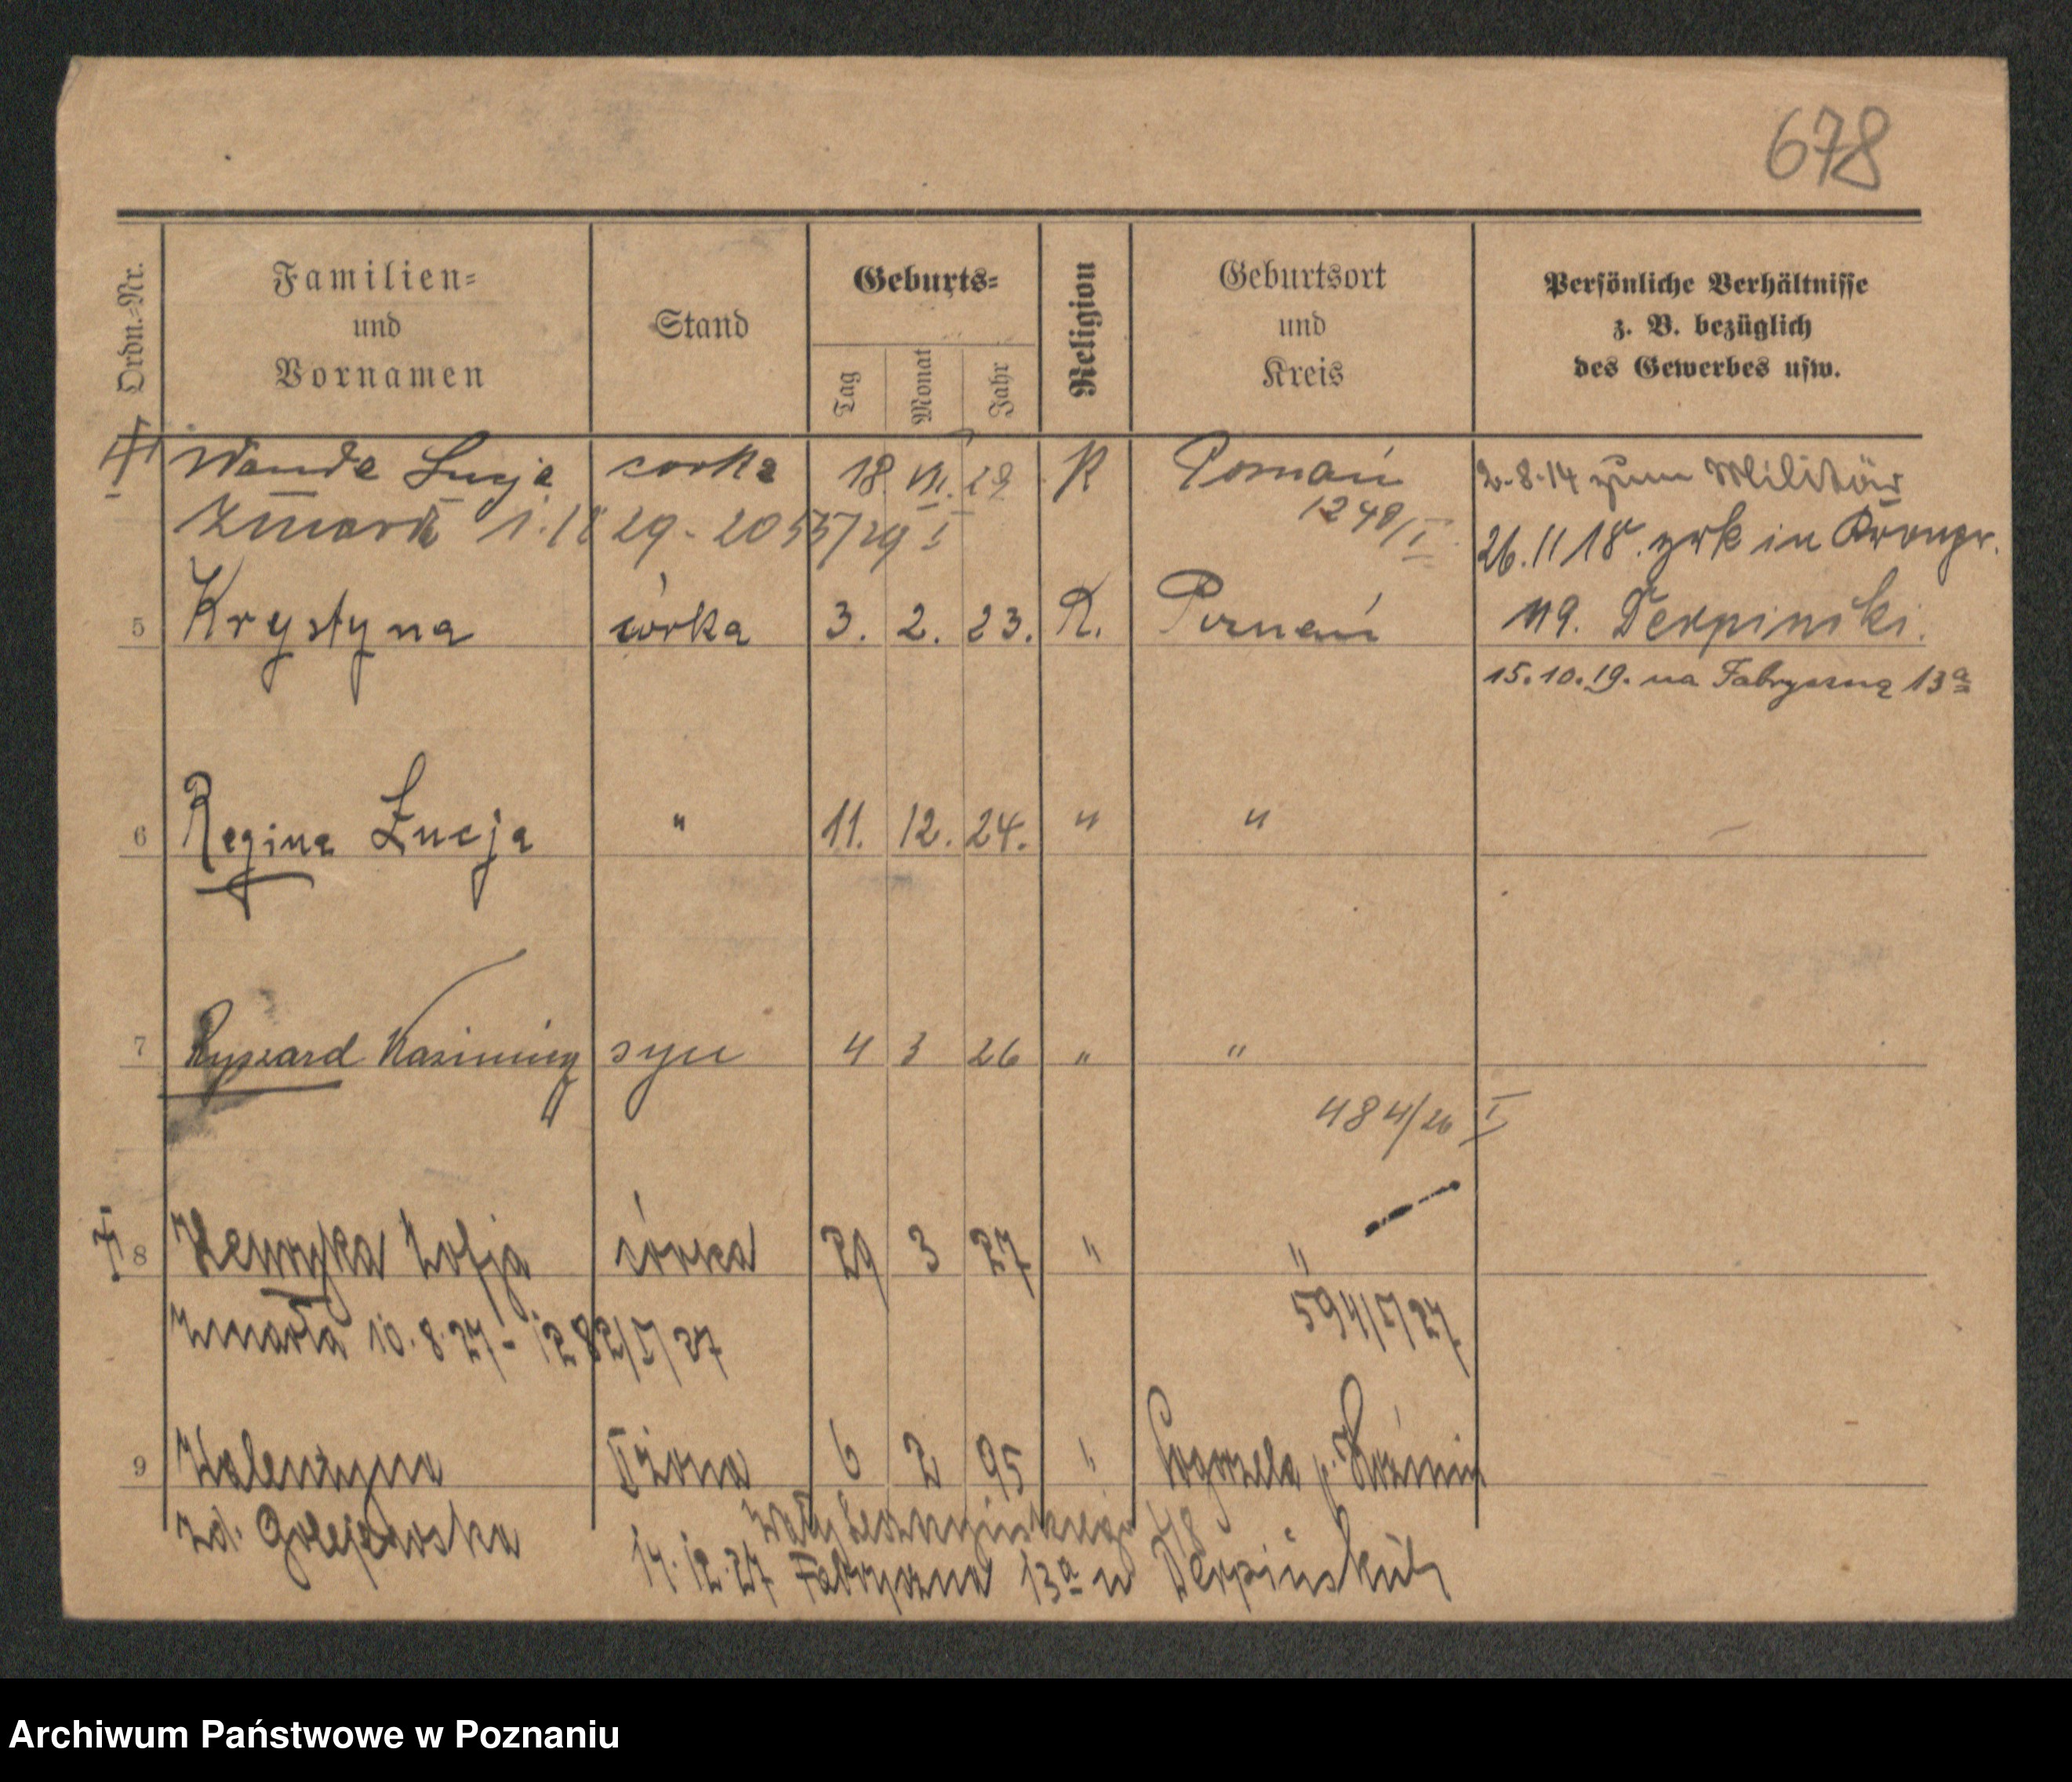 678
Ordn.-Nr.
Familien- und Vornamen
Stand
Geburts-
Tag
Monat
Jahr
Religion
Geburtsort und Kreis
Persönliche Verhältnisse z. B. bezüglich des Gewerbes usw.
Wanda Lucja corka 18. VII. 29 K Poznań
1249/I
2.8.14 zum Militär
26.11 18. zrk in Kronpr.
Zmarła 29 - 2055/29 I
5 Krystyna córka 3. 2. 23. K. Poznań
119. Derpinski.
15.10.19. na Fabryczną 13a
6 Regina Łucja " 11. 12. 24. " "
7 Ryszard Kazimierz syn 4 3 26 " "
484/26 I
8 Henryka Zofja córka 29 3 27 " "
594/I/27
zmarła 10.8.27 - 1282/I/27
9 Walentyna II żona 6 2 95 " Pogorzela p. Koźmin
zd. Golejewska
Wały Leszczyńskiego
14.12.27 Fabryczna 13a u Derpińskich